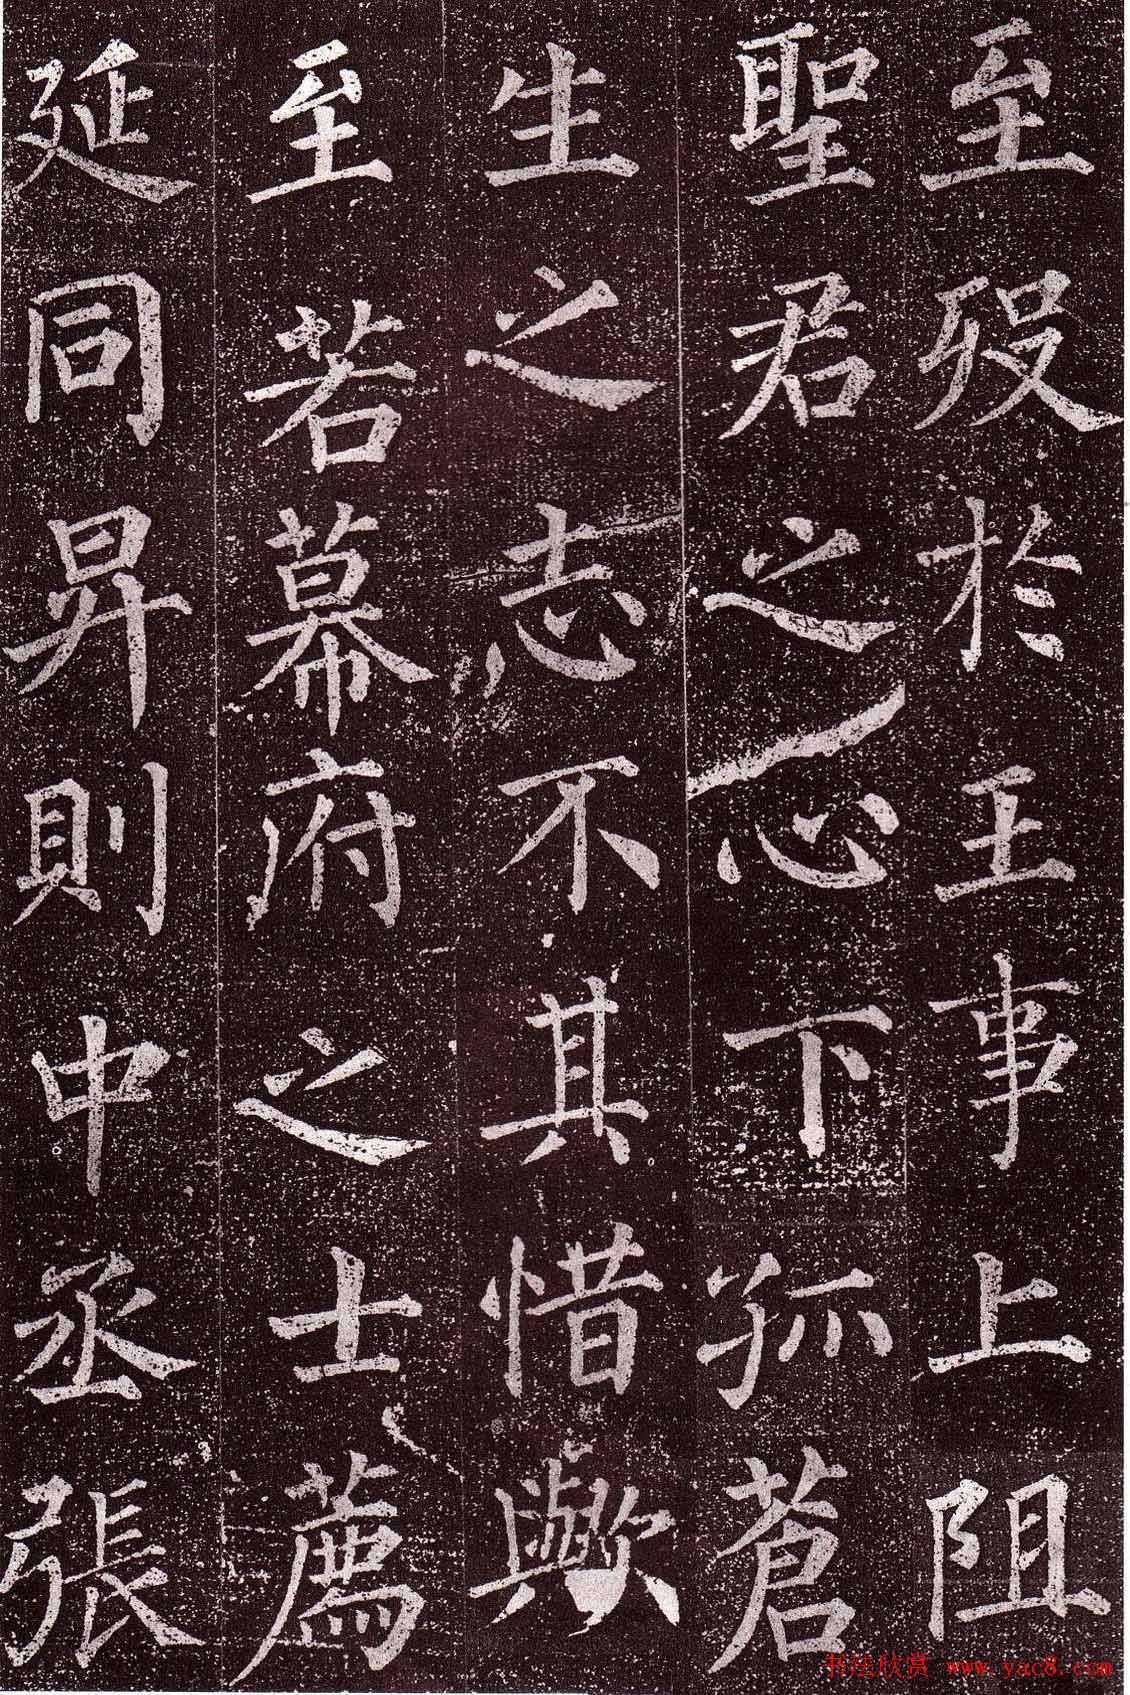 至歿於王事上阻
聖君之心下孤蒼
生之志不其惜歟
至若幕府之士薦
延同昇則中丞張
书法欣赏 www.yac8.com